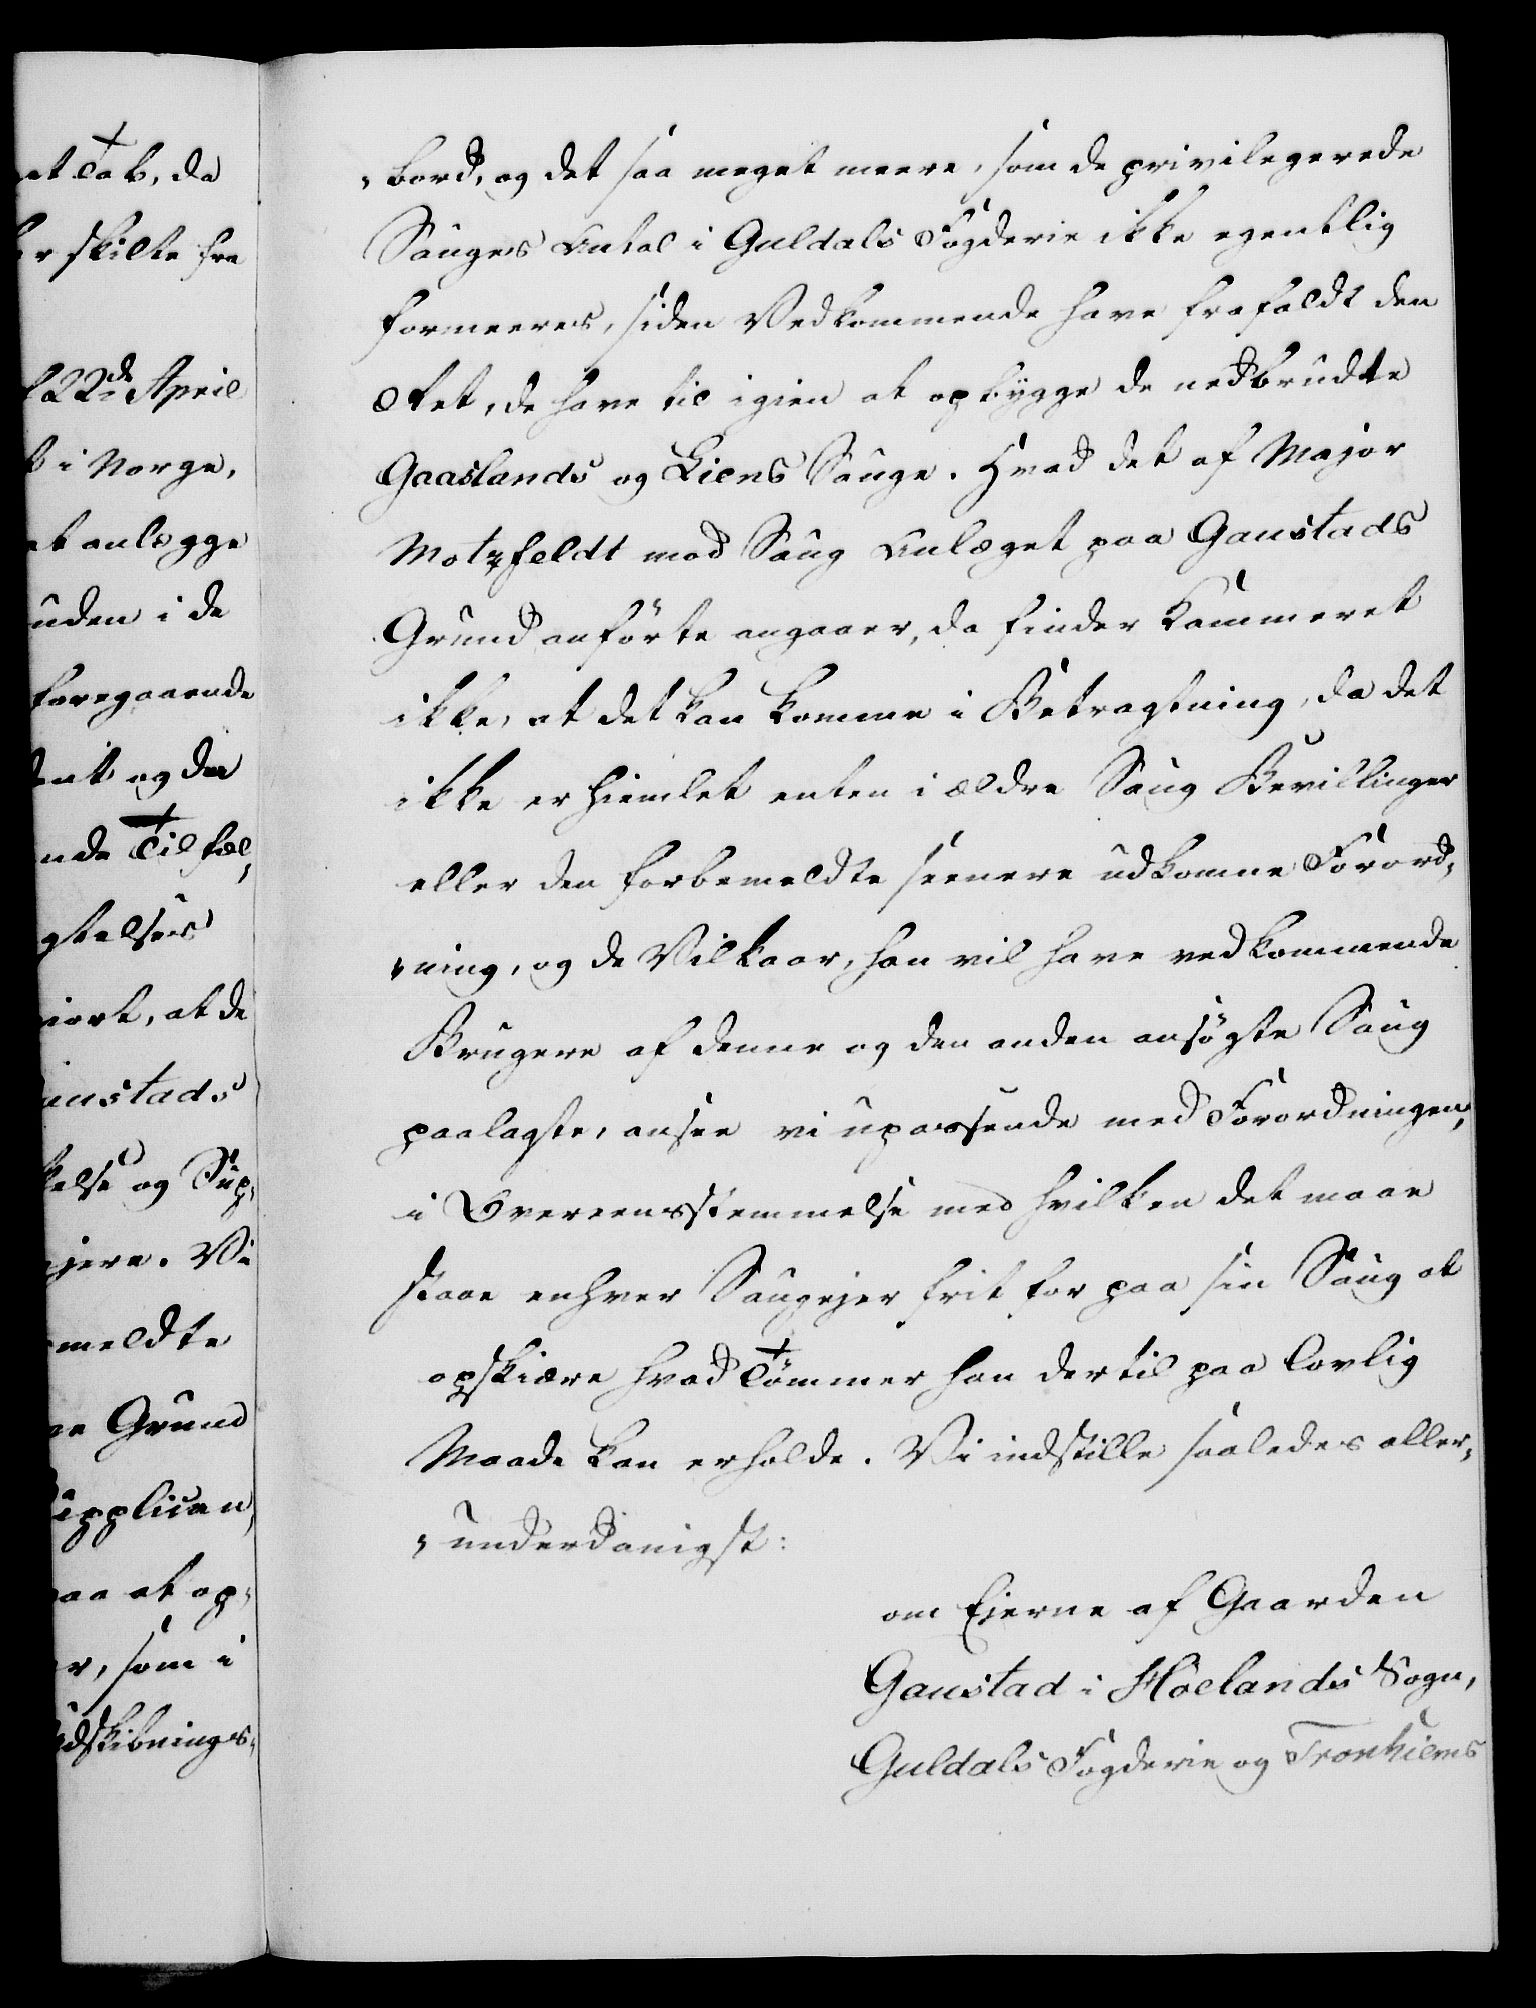 et Tab, da
er skilte fra
22de April
i Norge,
at anlægge
uden i de
foregaaende
og der
nde Tilfæl„
gtelser
giort, at de
austads
kelse og Sup„
jere. Vi
meldte
ne Grund
Supplican„
paa at op„
er, som i
Udskibnings„
„bord, og det saa meget meere, som de privilegerede
Sauges Antal i Guldals Fogderie ikke egentlig
formeeres, siden Vedkommende have frafaldt den
Ret, de have til igien at opbygge de nedbrudte
Gaaslands og Liens Sauge. Hvad det af Major
Motzfeldt mod Saug Anlæget paa Gaustads
Grund anförte angaaer, da finder Kammeret
ikke, at det kan komme i Betragtning, da det
ikke er hiemlet enten i ældre Saug Bevillinger
eller den forbemeldte seenere udkomne Forord„
„ning, og de Vilkaar, han vil have vedkommende
Brugere af denne og den anden ansögte Saug
paalagte, ansee vi upassende med Forordningen,
i Overeensstemmelse med hvilken det maae
staae enhver Saugejer frit for paa sin Saug at
opskiære hvad Tömmer han dertil paa lovlig
Maade kan erholde. Vi indstille saaledes aller„
„underdanigst:
om Ejerne af Gaarden
Gaustad i Hoelands Sogn,
Guldals Fogderie og Tronhiems